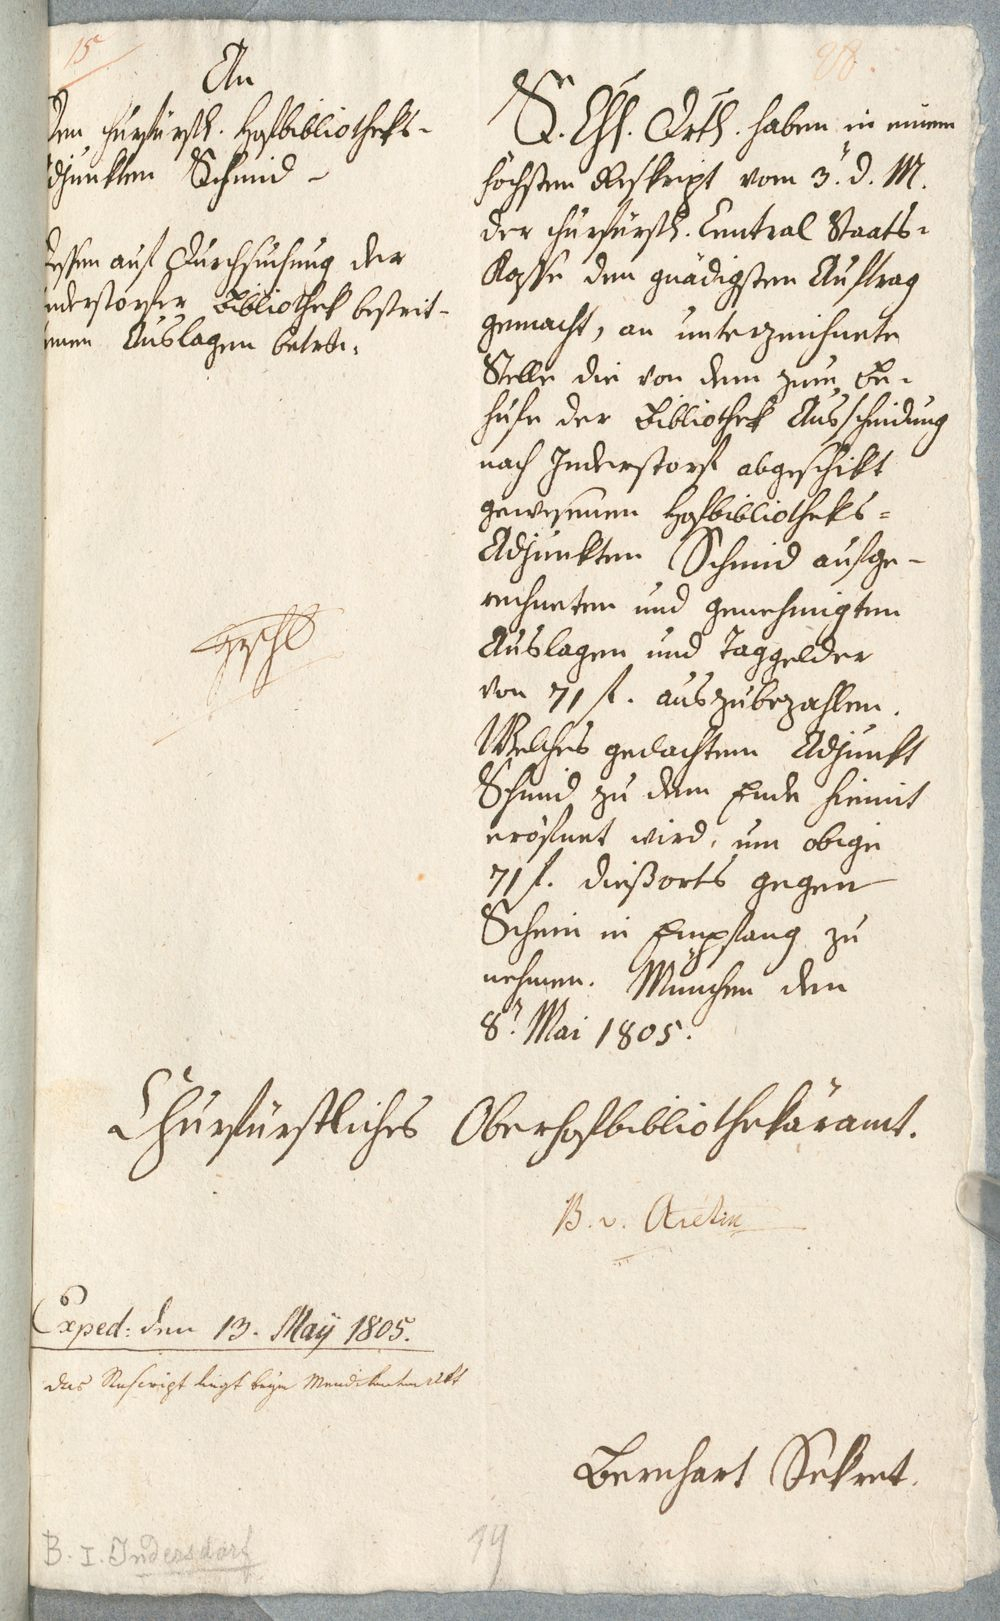 15
98.
An
den churfürstl. Hofbibliotheks-
Adjunkten Schmid -
dessen auf Durchsuchung der
Inderstorfer Bibliothek bestrit-
tenen Auslagen betrl.
S. Chf. Drtl. haben in einem
höchsten Reskript vom 3t. d. M.
der churfürstl. Central Staats-
Kasse den gnädigsten Auftrag
gemacht, an unterzeichnete
Stelle die von dem zum Be-
hufe der Bibliothek Ausscheidung
nach Inderstorf abgeschikt
gewesenen Hofbibliotheks-
Adjunkten Schmid aufge-
rechneten und genehmigten
Auslagen und Taggelder
von 71 f. auszubezahlen.
Welches gedachtem Adjunkt
Schmid zu dem Ende hiemit
eröfnet wird, um obige
71 f. dießorts gegen
Schein in Empfang zu
nehmen. München den
8t. Mai 1805.
Churfürstliches Oberhofbibliothekäramt.
B. v. Aretin
Exped: den 13. Maÿ 1805.
das Rescript liegt beym
Bernhart Sekret.
B. I. Indersdorf